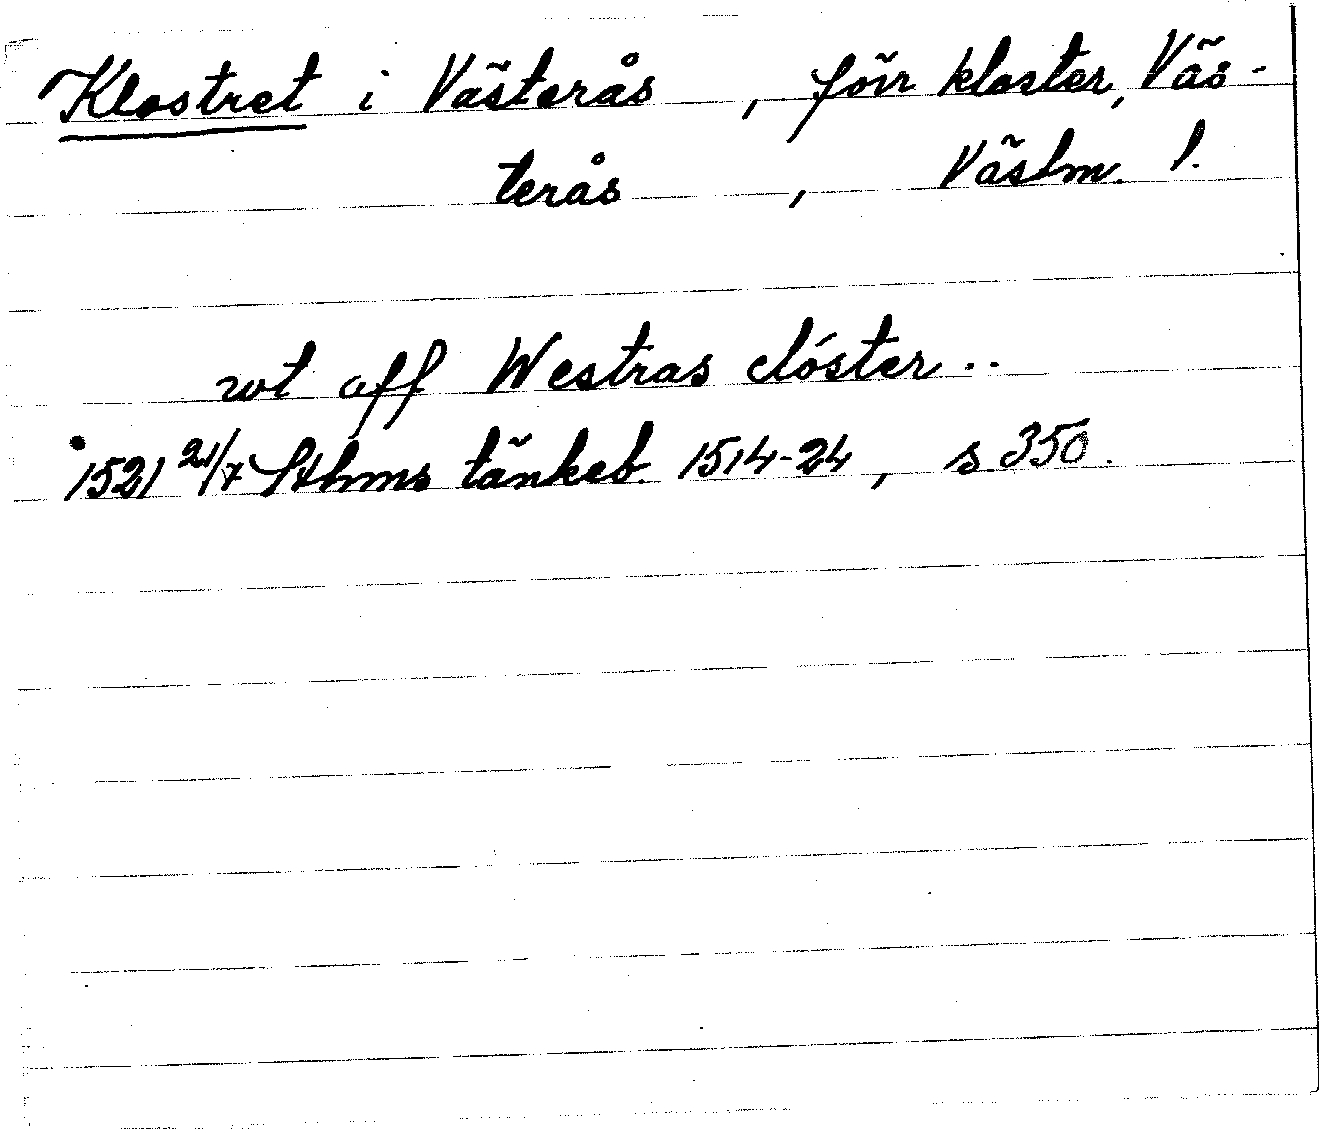 Klostret i Västerås, förr kloster, Väs-
terås, Västm. l.
wt aff Westras clóster..
1521 21/7 Sthms tänkeb. 1514-24, s 350.